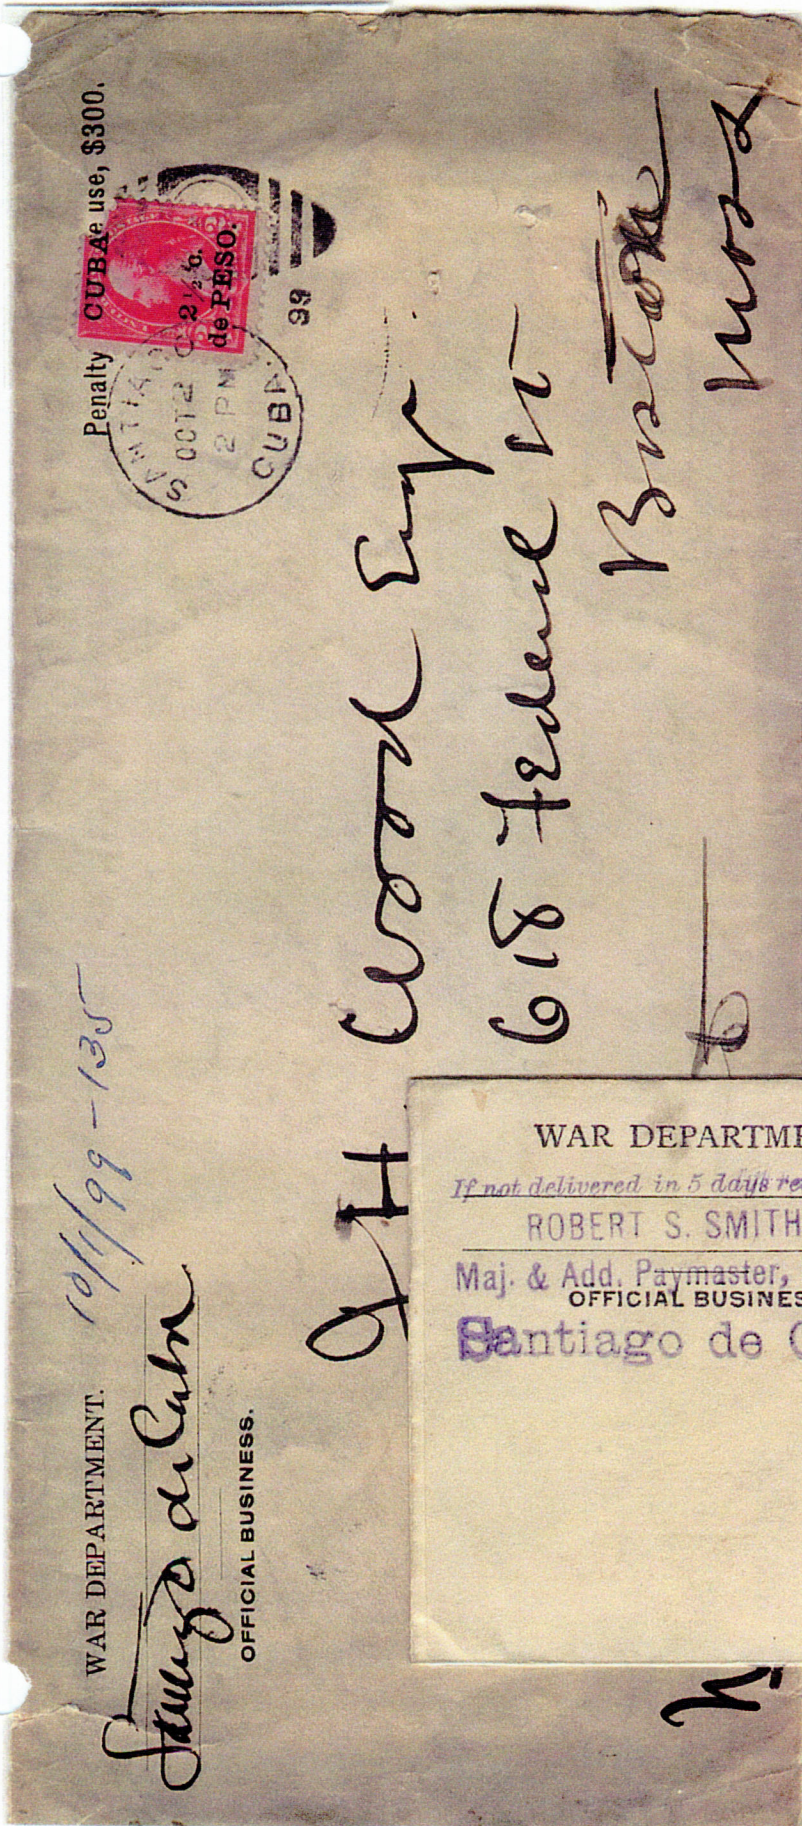 WAR DEPARTMENT.
Santiago de Cuba
OFFICIAL BUSINESS.
10/1/99-135
Penalty e use, $300.
CUBA
2½ c.
de PESO.
OCT 2
2 PM
CUBA
99
J H Wood Esq
618 Federal St
Boston
Mass
WAR DEPARTME
If not delivered in 5 days re
ROBERT S. SMITH
Maj. & Add. Paymaster,
OFFICIAL BUSINES
Santiago de C